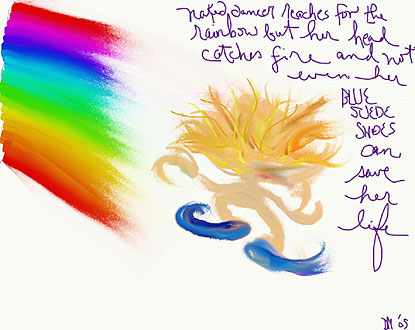 naked dancer reaches for the
rainbow but her head
catches fire and not
even her
BLUE
SUEDE
SHOES
can
save
her
life